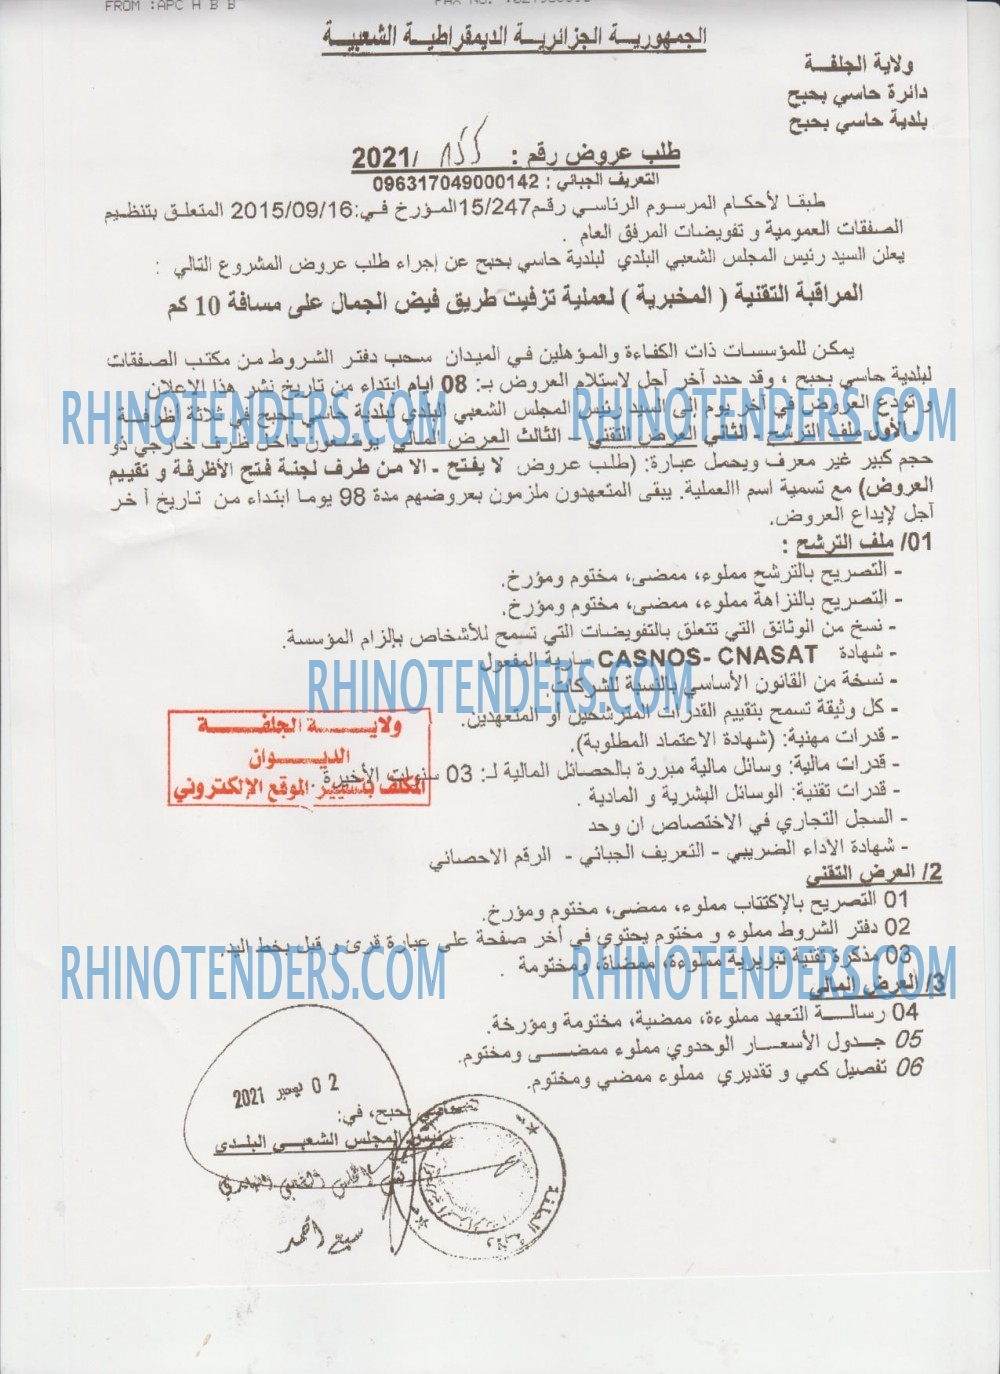 FROM :APC H B B
الجمهوريـة الجزائريـة الديمقراطيـة الشعبيـة
ولاية الجلفـة
دائرة حاسي بحبح
بلدية حاسي بحبح
طلب عروض رقم : 2021/
التعريف الجبائي : 096317049000142
طبقـا لأحكـام المرسـوم الرئاسي رقـم15/247المـؤرخ فـي:2015/09/16 المتعلـق بتنظـيم
الصفقات العمومية و تفويضات المرفق العام .
يعلن السيد رئيس المجلس الشعبي البلدي لبلدية حاسي بحبح عن إجراء طلب عروض المشروع التالي :
المراقبة التقنية ( المخبرية ) لعملية تزفيت طريق فيض الجمال على مسافة 10 كم
يمكن للمؤسسات ذات الكفاءة والمؤهلين في الميدان سحب دفتر الشروط من مكتب الصـفقات
لبلدية حاسي بحبح ، وقد حدد آخر أجل لاستلام العروض بـ: 08 ايام ابتداء من تاريخ نشر هذا الاعلان
و تودع العروض في آخر يوم إلى السيد رئيس المجلس الشعبي البلدي لبلدية حاسي بحبح في ثلاثة أظرفـة
- الأول ملف الترشح - الثاني العرض التقني - الثالث العرض المالي يوضعون داخل ظرف خارجي ذو
حجم كبير غير معرف ويحمل عبارة: (طلب عروض لا يفتح - الا من طرف لجنة فتح الأظرفة و تقييم
العروض) مع تسمية اسم االعملية. يبقى المتعهدون ملزمون بعروضهم مدة 98 يوما ابتداء من تاريخ أخر
أجل لإيداع العروض.
01/ ملف الترشح :
- التصريح بالترشح مملوء، ممضى، مختوم ومؤرخ.
- التصريح بالنزاهة مملوء، ممضى، مختوم ومؤرخ.
- نسخ من الوثائق التي تتعلق بالتفويضات التي تسمح للأشخاص بإلزام المؤسسة.
- شهادة CASNOS- CNASAT سارية المفعول
- نسخة من القانون الأساسي بالنسبة للشركات.
- كل وثيقة تسمح بتقييم القدرات المترشحين أو المتعهدين.
- قدرات مهنية: (شهادة الاعتماد المطلوبة).
- قدرات مالية: وسائل مالية مبررة بالحصائل المالية لـ: 03 سنوات الأخيرة .
- قدرات تقنية: الوسائل البشرية و المادية .
- السجل التجاري في الاختصاص ان وحد
- شهادة الآداء الضريبي - التعريف الجبائي - الرقم الاحصائي
ولايـــة الجلفـــة
الديـــوان
المكلف بتسيير الموقع الإلكتروني
2/ العرض التقني
01 التصريح بالإكتتاب مملوء، ممضى، مختوم ومؤرخ.
02 دفتر الشروط مملوء و مختوم يحتوي في أخر صفحة على عبارة قرئ و قبل بخط اليد.
03 مذكرة تقنية تبريرية مملوءة، ممضاة، ومختومة .
3/ العرض المالي
04 رسالـــة التعهد مملوءة، ممضية، مختومة ومؤرخة.
05 جـدول الأسعـــار الوحدوي مملوء ممضـــى ومختوم.
06 تفصيل كمي و تقديري مملوء ممضي ومختوم.
02 نوفمبر 2021
حاسي بحبح، في:
رئيس المجلس الشعبـي البلـدي
سبع أحمد
ولاية الجلفة
RHINOTENDERS.COM
RHINOTENDERS.COM
RHINOTENDERS.COM
RHINOTENDERS.COM
RHINOTENDERS.COM